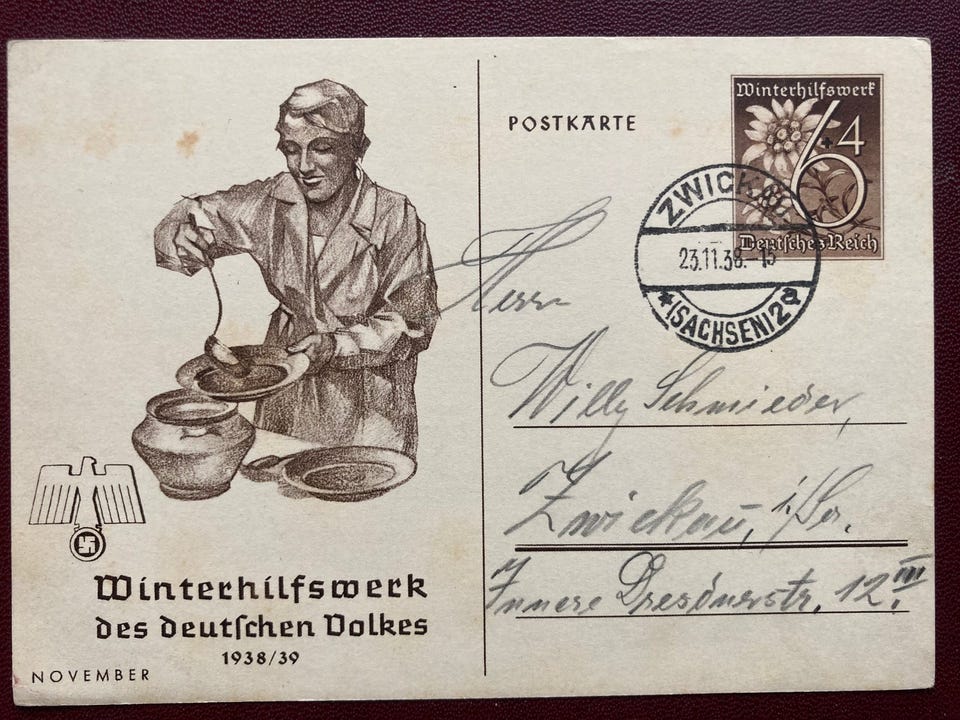 Winterhilfswerk
des deutschen Volkes
1938/39
NOVEMBER
POSTKARTE
Winterhilfswerk
6+4
Deutsches Reich
ZWICKAU
23.11.38.-15
* (SACHSEN) 2a
Herrn
Willy Schmieder,
Zwickau, i/Sa.
Innere Dresdnerstr. 12. III